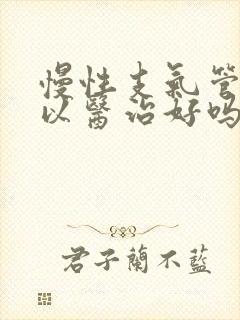 慢性支氣管
以醫治好吗
君子蘭不藍